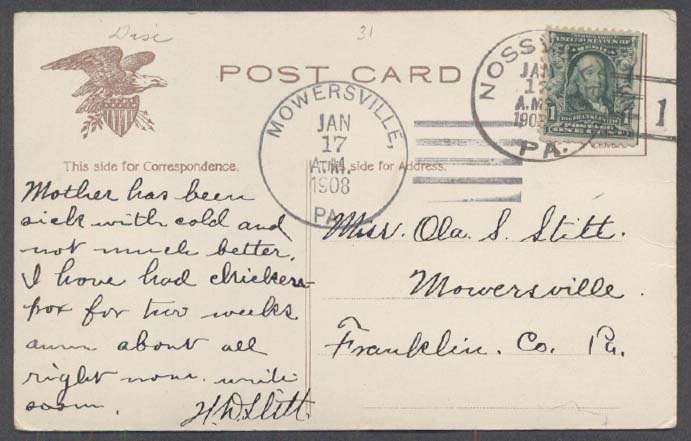 Disc
31
POST CARD
MOWERSVILLE,
JAN
17
A.M.
1908
PA.
NOSSV
JAN
17
A.M.
190
PA.
1
1
ONE CENT
This side for Correspondence.
This side for Address.
Mother has been
sick with cold and
not much better.
I have had chicken-
pox for two weeks
amm about all
right now. write
soon.
H. D. Stitt.
Miss. Ola. S. Stitt.
Mowersville.
Franklin. Co. Pa.